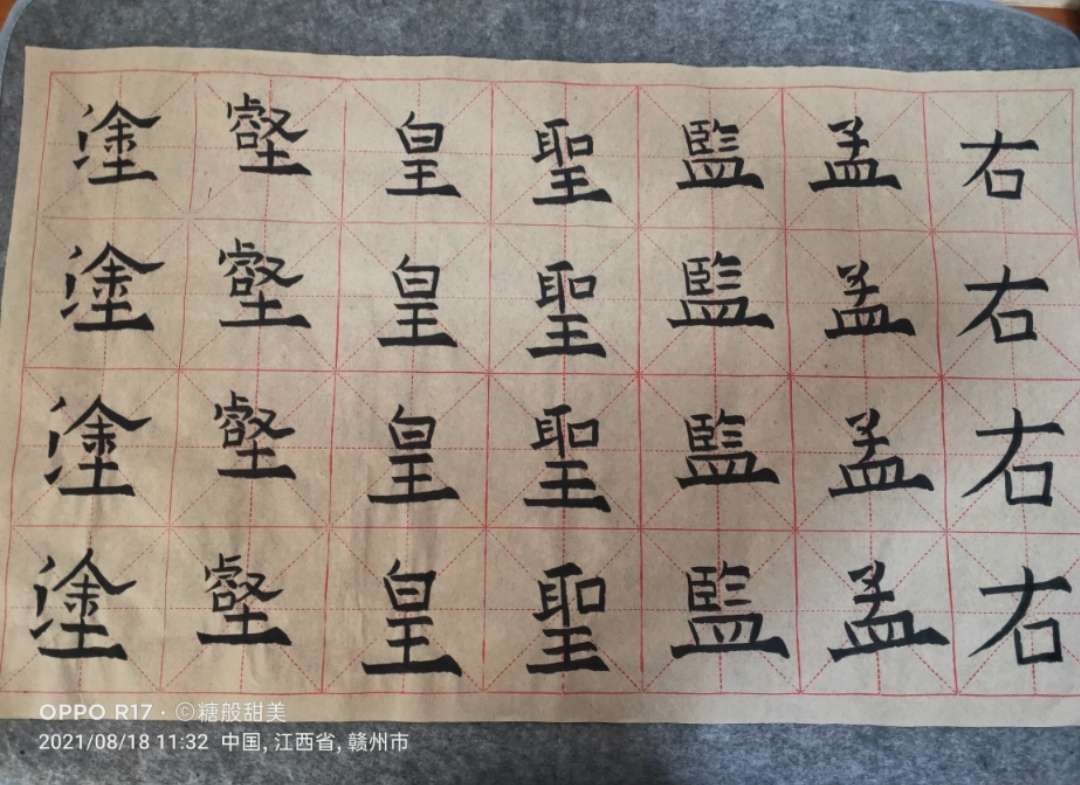 右右右右
孟孟孟孟
監監監監
聖聖聖聖
皇皇皇皇
壑壑壑壑
塗塗塗塗
OPPO R17 · ©糖般甜美
2021/08/18 11:32 中国, 江西省, 赣州市